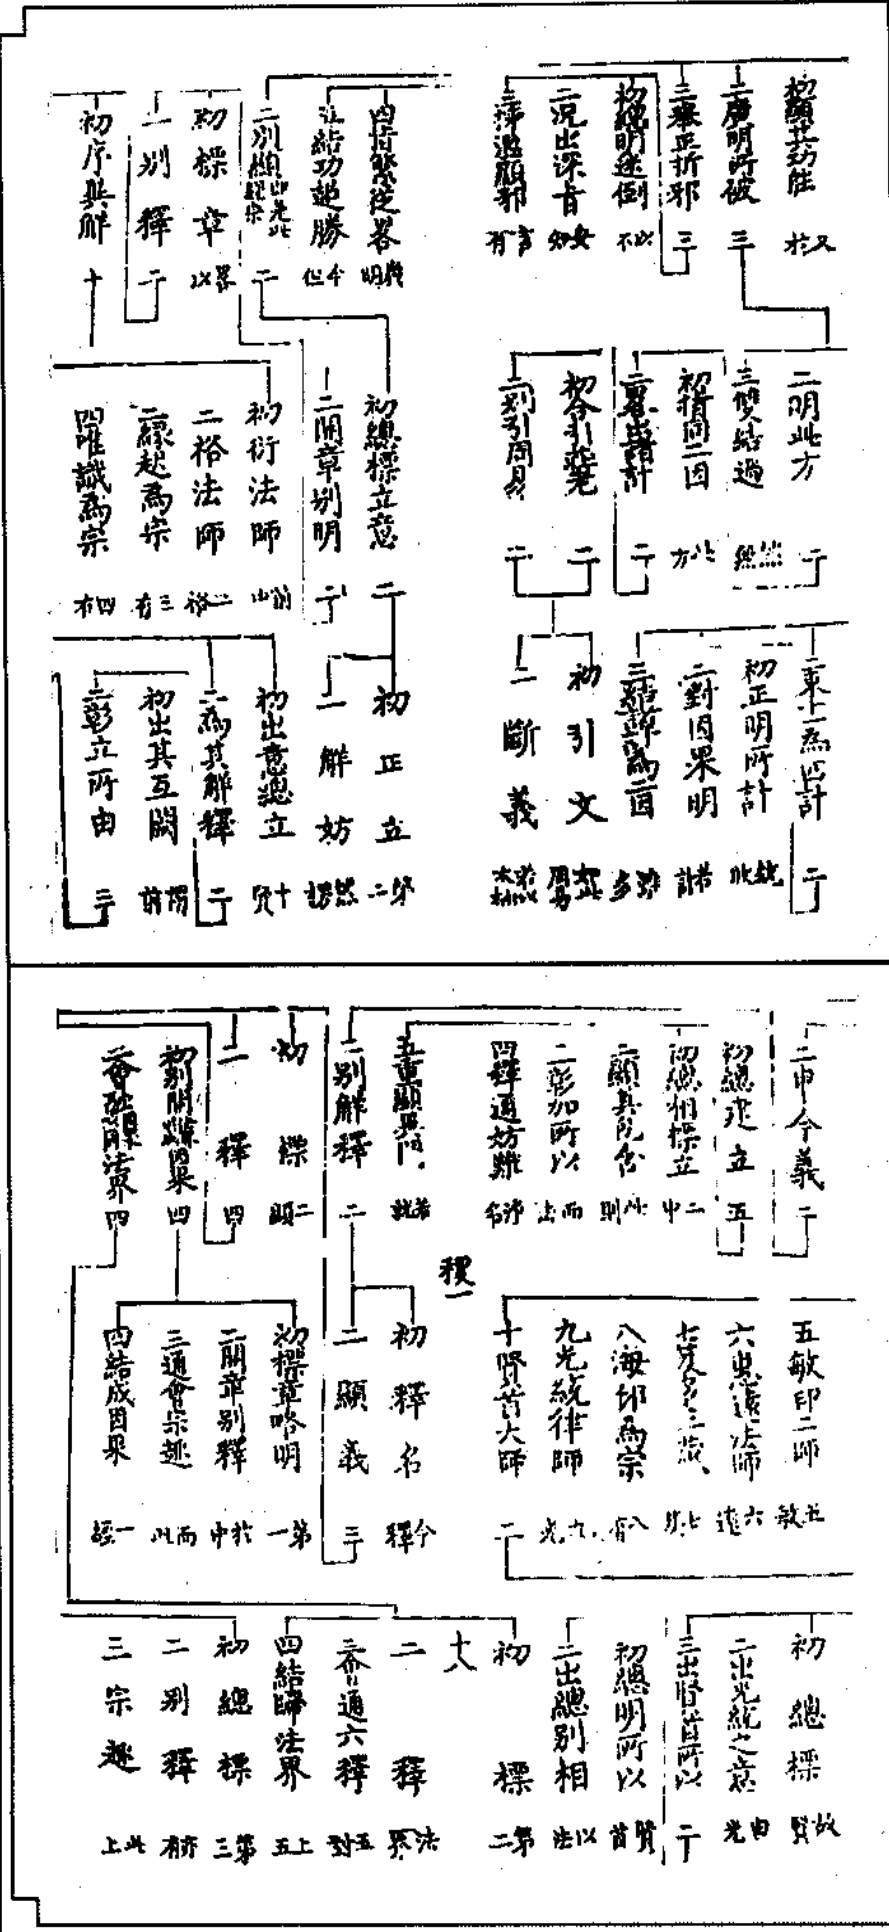 初顯其功能 又於
二廣明所破 三
三舉正折邪 三
初總明迷倒 以不
二況出深旨 安知
三揀濫顯邪 言有
四指繁從畧 與明
五結功超勝 今但
二別顯
初標章 畧以
二別釋 二
初序異解 十
二明此方 二
三雙結過 然
初指同二因 此方
二畧出諸計 二
初合引莊老 二
二別引周易 二
初總標立意 二
二開章別明 二
初衍法師 前
二裕法師 二裕
三緣起為宗 三有
四唯識為宗 四有
二東土為四計 二
初正明所計
二對因果明 若計
三結歸為二因
初引文
二斷義
初正立 第二
二解妨 然
初出意總立 十
二為其解釋 二
初出其互闕
二彰立所由 三
二申今義 二
初總建立 五
初總相標立 二中
二顯具所含 則
二彰加所以 而法
四釋通妨難 名
五重顯異門 若就
二別解釋 二
初標 二顯
二釋 四
初別開釋因果 四
二會融歸法界 四
五敏印二師 五敏
六惠遠法師 六遠
七笈多三藏 七
八海印為宗 八有
九光統律師 九光
十賢首大師 二
釋一
初釋名 今釋
二顯義 三
初標章略明 第一
二開章別釋 於中
三通會宗趣 而此
四結成因果 一經
初總標 故賢
二出光統之意 由光
三出賢首所以 二
初總明所以 賢首
二出總別相 以法
初標 第二
十八
二釋 法界
三會通六釋 五對
四結歸法界 上五
初總標 第三
二別釋 亦有
三宗趣 此上